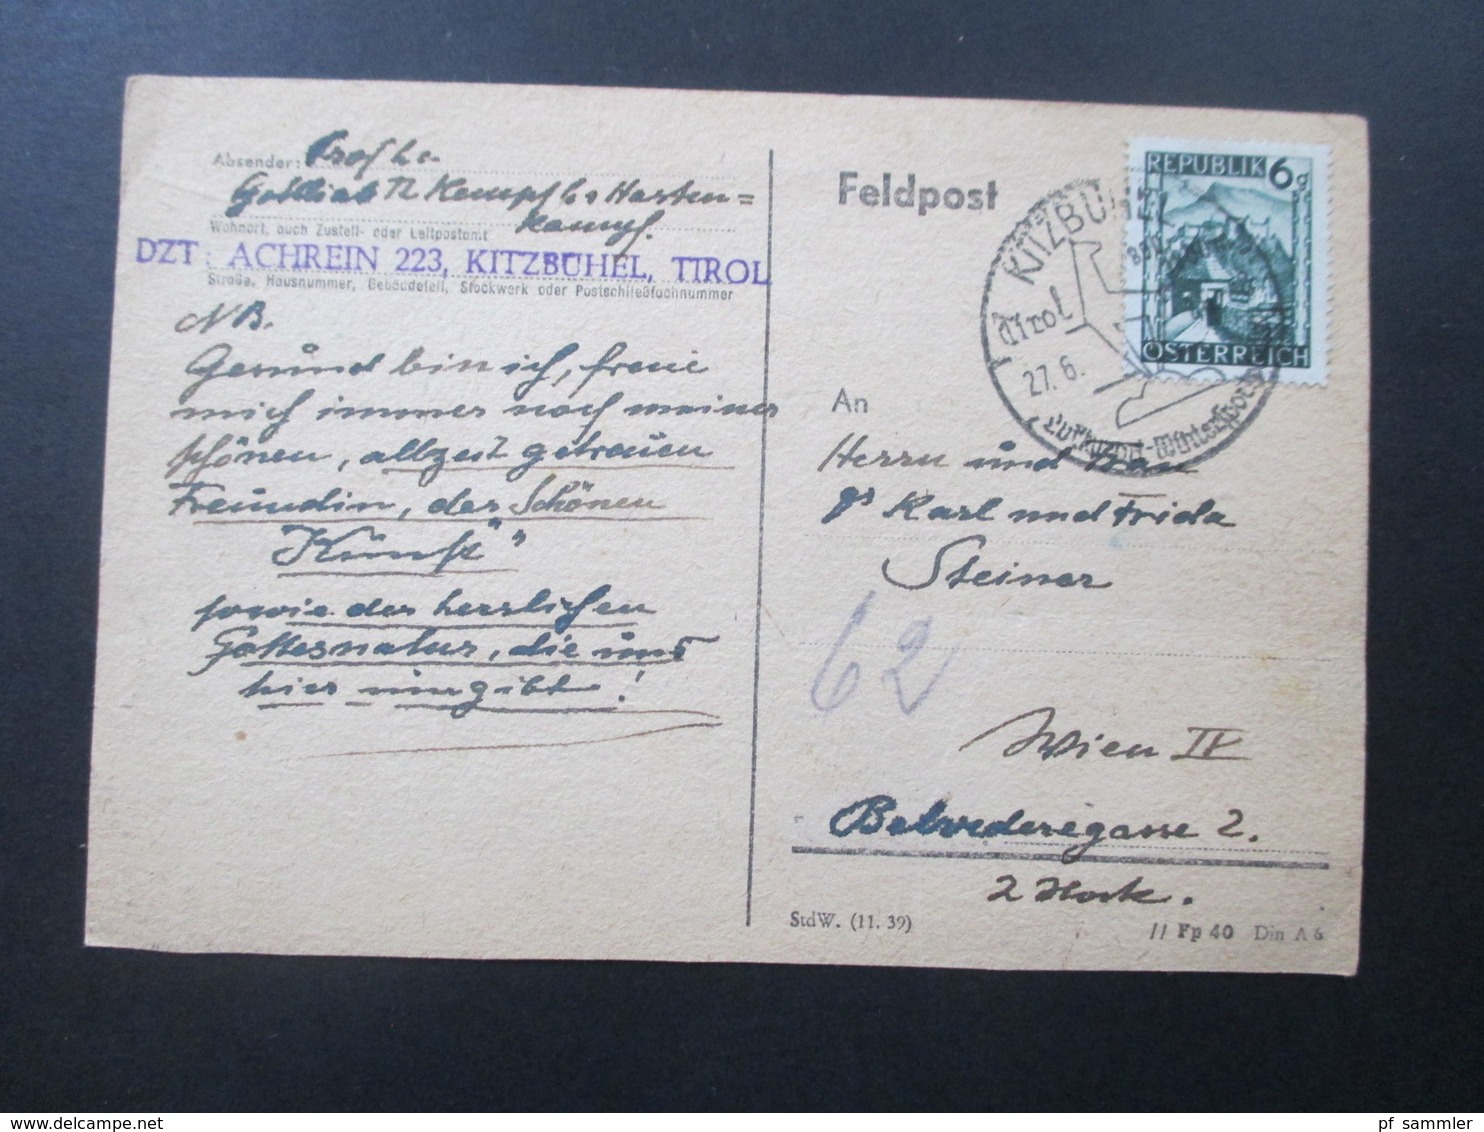 Absender:
Gottlieb Th Kempf v. Harten=
kampf.
Wohnort, auch Zustell- oder Leitpostamt
DZT: ACHREIN 223, KITZBÜHEL, TIROL
Straße, Hausnummer, Gebäudeteil, Stockwerk oder Postschließfachnummer
NB.
Gesund bin ich, freue
mich immer noch meiner
schönen, allzeit getreuen
Freundin, der Schönen
"Kunst"
sowie der herrlichen
Gottesnatur, die uns
hier umgibt!
Feldpost
REPUBLIK 6g
ÖSTERREICH
KITZBÜHEL
Tirol
27.6.
Luftkurort-Wintersport
An
Herrn und Frau
Karl und Frida
Steiner
62
Wien IV
Belvederegasse 2.
2 Stock.
StdW. (11. 39)
// Fp 40 Din A 6
pf_sammler